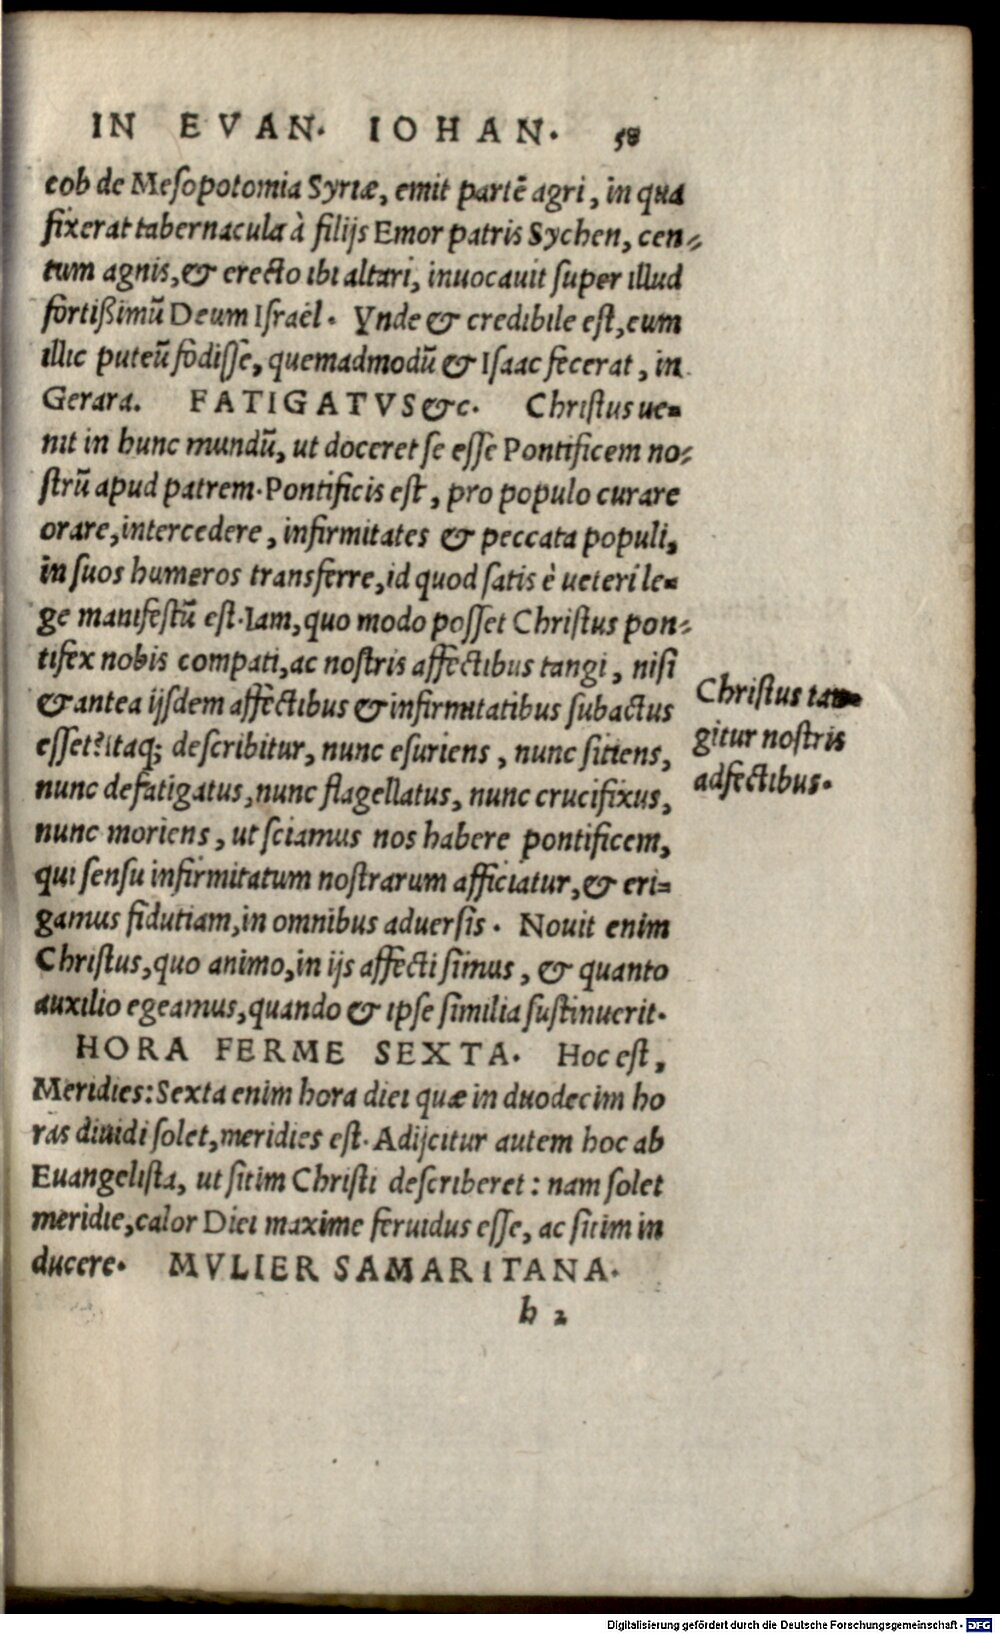 IN EVAN. IOHAN. 58
cob de Mesopotomia Syriæ, emit partẽ agri, in qua
fixerat tabernacula à filijs Emor patris Sychen, cen-
tum agnis, & erecto ibi altari, inuocauit super illud
fortißimũ Deum Israël. Vnde & credibile est, eum
illic puteũ fodisse, quemadmodũ & Isaac fecerat, in
Gerara. FATIGATVS &c. Christus ue-
nit in hunc mundũ, ut doceret se esse Pontificem no-
strũ apud patrem. Pontificis est, pro populo curare
orare, intercedere, infirmitates & peccata populi,
in suos humeros transferre, id quod satis è ueteri le-
ge manifestũ est. Iam, quo modo posset Christus pon-
tifex nobis compati, ac nostris affectibus tangi, nisi
& antea ijsdem affectibus & infirmitatibus subactus
esset? itaq; describitur, nunc esuriens, nunc sitiens,
nunc defatigatus, nunc flagellatus, nunc crucifixus,
nunc moriens, ut sciamus nos habere pontificem,
qui sensu infirmitatum nostrarum afficiatur, & eri-
gamus fidutiam, in omnibus aduersis. Nouit enim
Christus, quo animo, in ijs affecti simus, & quanto
auxilio egeamus, quando & ipse similia sustinuerit.
HORA FERME SEXTA. Hoc est,
Meridies: Sexta enim hora diei quæ in duodecim ho
ras diuidi solet, meridies est. Adijcitur autem hoc ab
Euangelista, ut sitim Christi describeret: nam solet
meridie, calor Diei maxime feruidus esse, ac sitim in
ducere. MVLIER SAMARITANA.
h 2
Christus tan-
gitur nostris
adfectibus.
Digitalisierung gefördert durch die Deutsche Forschungsgemeinschaft - DFG